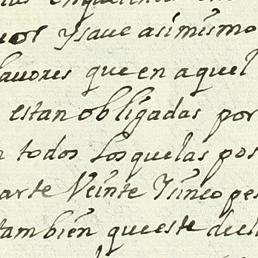 Ysave asimismo
lauores que en aquel
estan obligadas por
todos Losquelas pos
arte Veinte Ysinco pes
también queeste decl